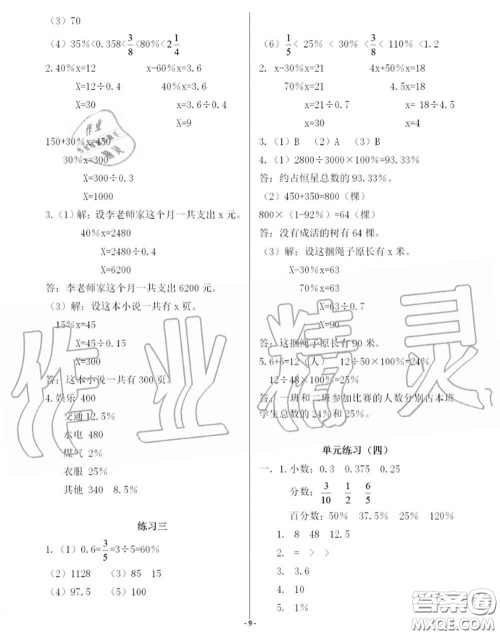 （3）70
（4）35%<0.358<3/8<80%<2 1/4
2.40%x=12 x-60%x=3.6
X=12÷0.4 40%x=3.6
X=30 x=3.6÷0.4
X=9
150+30%x=450
30%x=300
X=300÷0.3
X=1000
3.（1）解：设李老师家这个月一共支出 x 元。
40%x=2480
X=2480÷0.4
X=6200
答：李老师家这个月一共支出 6200 元。
（3）解：设这本小说一共有 x 页。
15%x=45
X=45÷0.15
X=300
答：这本小说一共有 300 页。
4.娱乐 400
交通 12.5%
水电 480
煤气 2%
衣服 25%
其他 340 8.5%
练习三
1.（1）0.6=3/5=3÷5=60%
（2）1128 （3）85 15
（4）97.5% （5）100
（6）1/5 < 25% < 30% < 3/8 < 110% <1.2
2. x-30%x=21 4x+50%x=18
70%x=21 4.5x=18
x=21÷0.7 x= 18÷4.5
x=30 x=4
3.（1）B （2）A （3）B
4.（1）2800÷3000×100%=93.33%
答：约占恒星总数的 93.33%。
（2）450+350=800（棵）
800×（1-92%）=64（棵）
答：没有成活的树有 64 棵。
（3）解：设这捆绳子原长有 x 米。
X-30%x=63
70%x=63
X=63÷0.7
X=90
答：这捆绳子原长有 90 米。
5.6+6=12（人） 12÷50×100%=24%
12÷48×100%=25%
答：一班和二班参加比赛的人数分别占本班
学生总数的 24%和 25%。
单元练习（四）
一、1.小数：0.3 0.375 0.25
分数：3/10 1/2 6/5
百分数：50% 37.5% 25% 120%
1. 8 48 12.5
2. = > >
3. 3.6
4. 10
5. 1%
- 9 -
作业精灵
答案圈
MXQE.COM